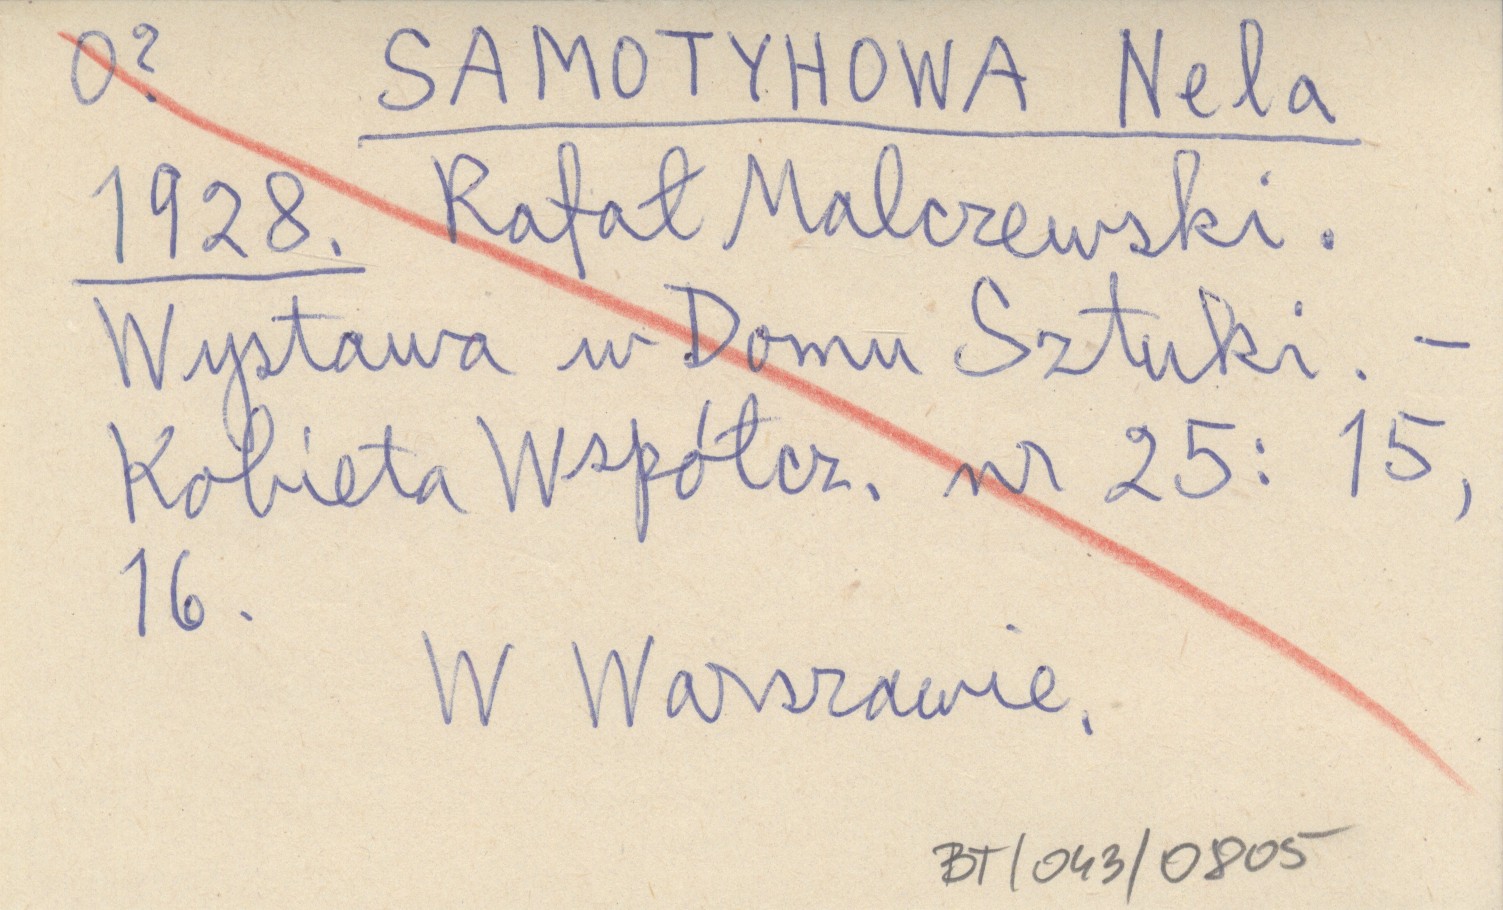 0? SAMOTYHOWA Nela
1928. Rafał Malczewski.
Wystawa w Domu Sztuki. –
Kobieta Współcz. nr 25: 15,
16.
W Warszawie.
BT/043/0805